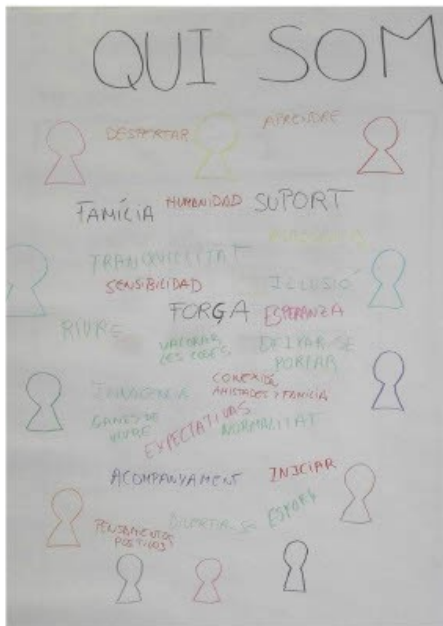 QUI SOM
DESPERTAR
APRENDRE
FAMÍLIA HUMANIDAD SUPORT
TRANQUIL·LITAT
SENSIBILIDAD
IL·LUSIÓ
FORÇA ESPERANZA
RIURE
VALORAR
LES COSES
DEIXAR-SE
PORTAR
CONEXIÓN
AMISTADES Y FAMILIA
GANES DE
VIURE
EXPECTATIVAS
NORMALITAT
ACOMPANYAMENT INICIAR
PENSAMIENTOS
POSITIVOS